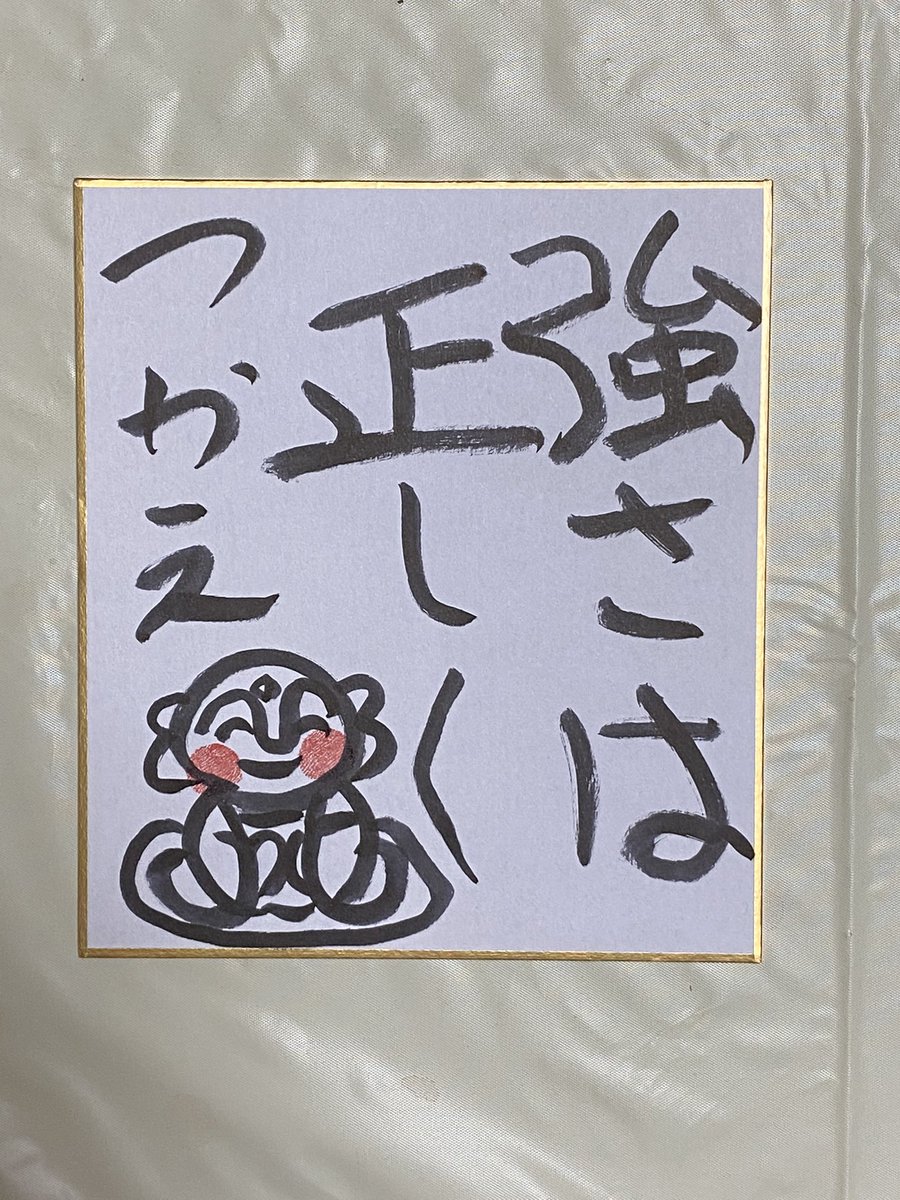 強さは
正しく
つかえ